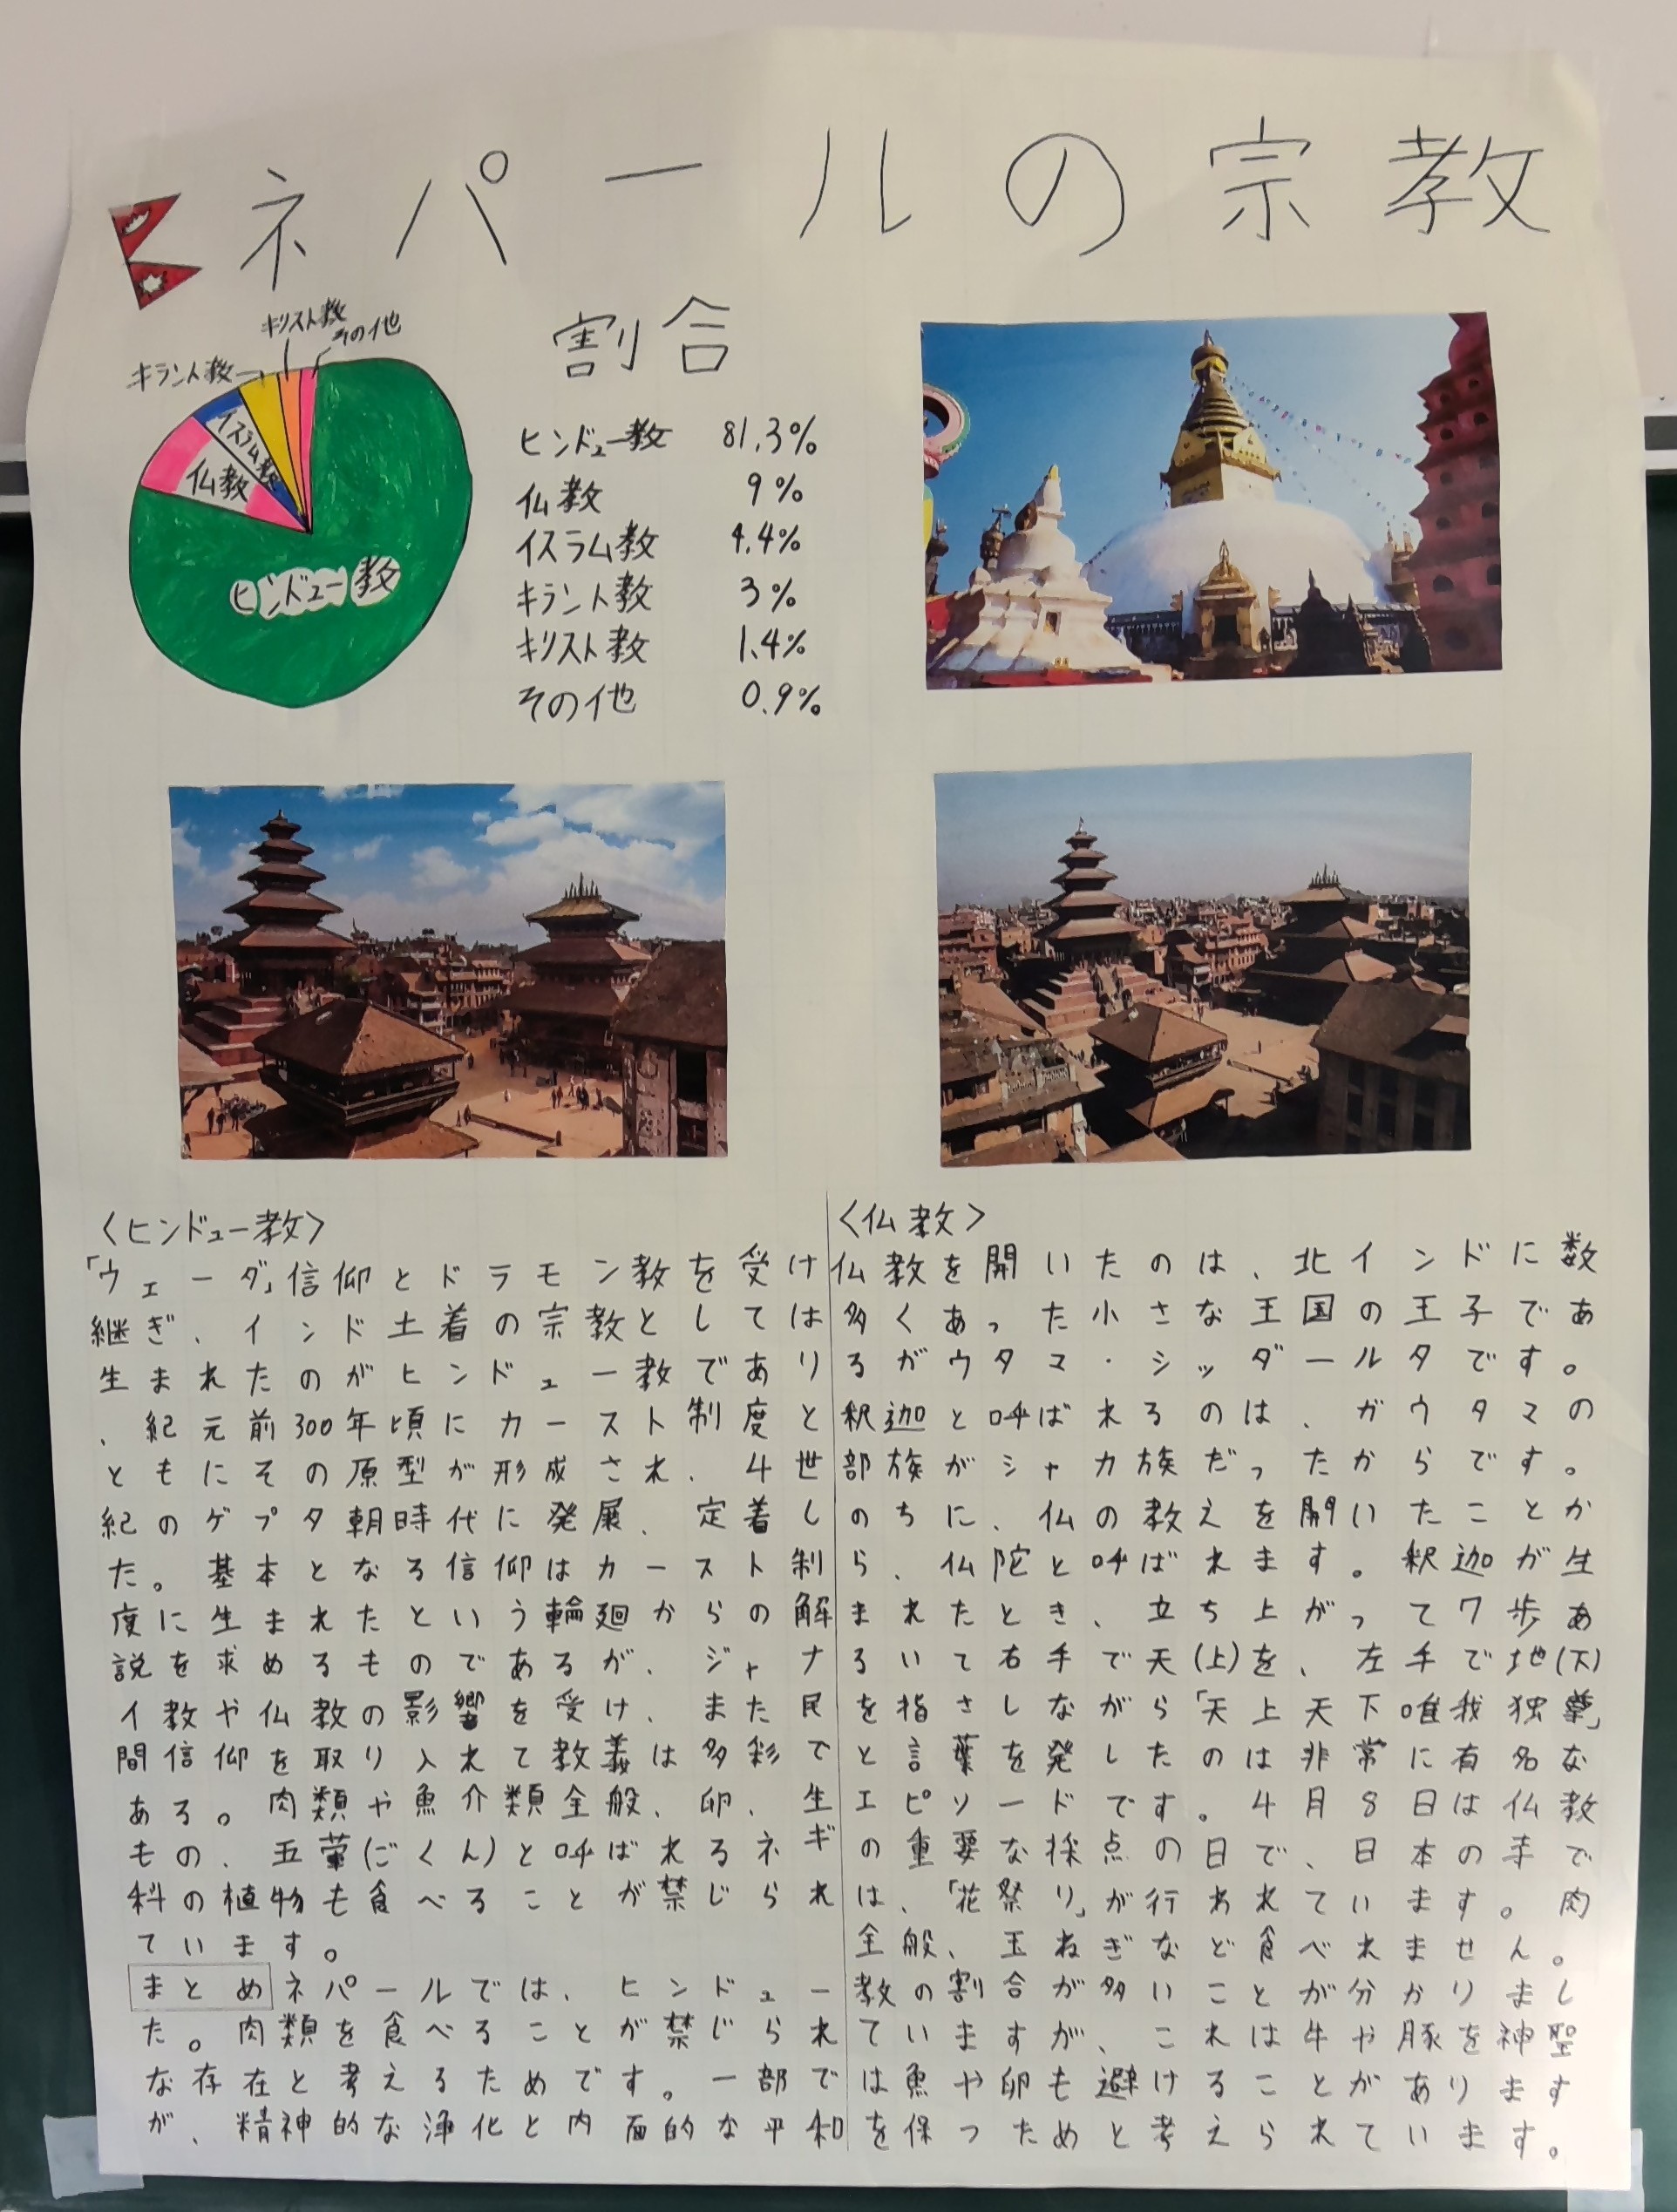 ネパールの宗教
キリスト教
その他
キラント教
イスラム教
仏教
ヒンドュー教
割合
ヒンドュー教 81.3%
仏教 9%
イスラム教 4.4%
キラント教 3%
キリスト教 1.4%
その他 0.9%
〈ヒンドュー教〉
「ウェーダ」信仰とドラモン教を受け
継ぎ、インド土着の宗教としては
生まれたのがヒンドュー教であり
、紀元前300年頃にカースト制度と
ともにその原型が形成され、4世
紀のゲプタ朝時代に発展、定着し
た。基本となる信仰はカースト制
度に生まれたという輪廻からの解
説を求めるものであるが、ジャナ
イ教や仏教の影響を受け、また民
間信仰を取り入れて教義は多彩で
ある。肉類や魚介類全般、卵、生
もの、五葷(ごくん)と呼ばれるネギ
科の植物も食べることが禁じられ
ています。
〈仏教〉
仏教を開いたのは、北インドに数
多くあった小さな王国の王子であ
るガウタマ・シッダールタです。
釈迦と呼ばれるのは、ガウタマの
部族がシャカ族だったからです。
のちに、仏の教えを開いたことか
ら、仏陀と呼ばれます。釈迦が生
まれたとき、立ち上がって7歩あ
るいて右手で天(上)を、左手で地(下)
を指さしながら「天上天下唯我独尊」
と言葉を発したのは非常に有名な
エピソードです。4月8日は仏教
の重要な採点の日で、日本の寺で
は、「花祭り」が行われています。肉
全般、玉ねぎなど食べれません。
まとめ ネパールでは、ヒンドュー教の割合が多いことが分かりまし
た。肉類を食べることが禁じられていますが、これは牛や豚を神聖
な存在と考えるためです。一部では魚や卵も避けることがあります
が、精神的な浄化と内面的な平和を保つためと考えられています。